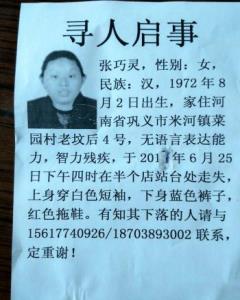 寻人启事
张巧灵，性别：女，
民族：汉，1972年8
月2日出生，家住河
南省巩义市米河镇菜
园村老坟后4号，无语言表达能
力，智力残疾，于2017年6月25
日下午四时在半个店站台处走失，
上身穿白色短袖，下身蓝色裤子，
红色拖鞋。有知其下落的人请与
15617740926/18703893002联系，
定重谢！